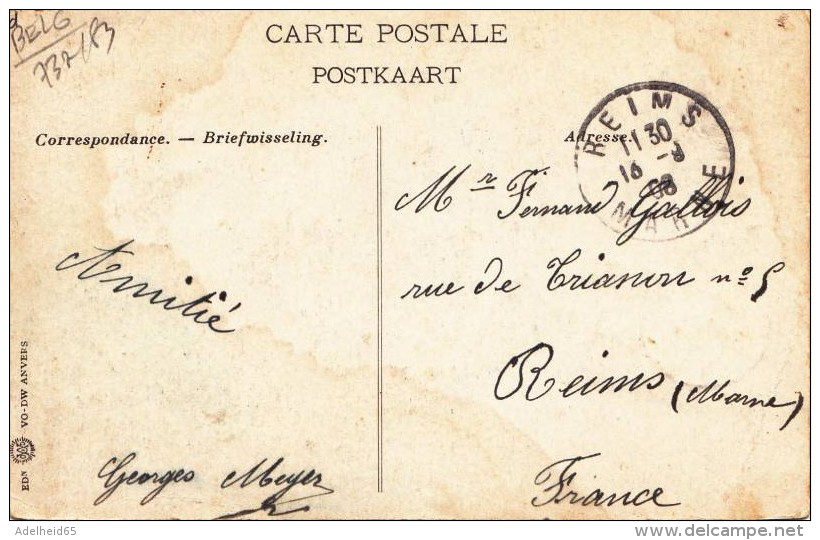 BELG
737/83
CARTE POSTALE
POSTKAART
Correspondance. — Briefwisseling.
Adresse.
REIMS
11 30
16 - 9
08
MARNE
Mr Fernand Gallois
rue de Trianon nº 5
Reims (Marne)
France
Amitié
Georges Meyer
EDN VO-DW ANVERS
Adelheid65
delcampe.net